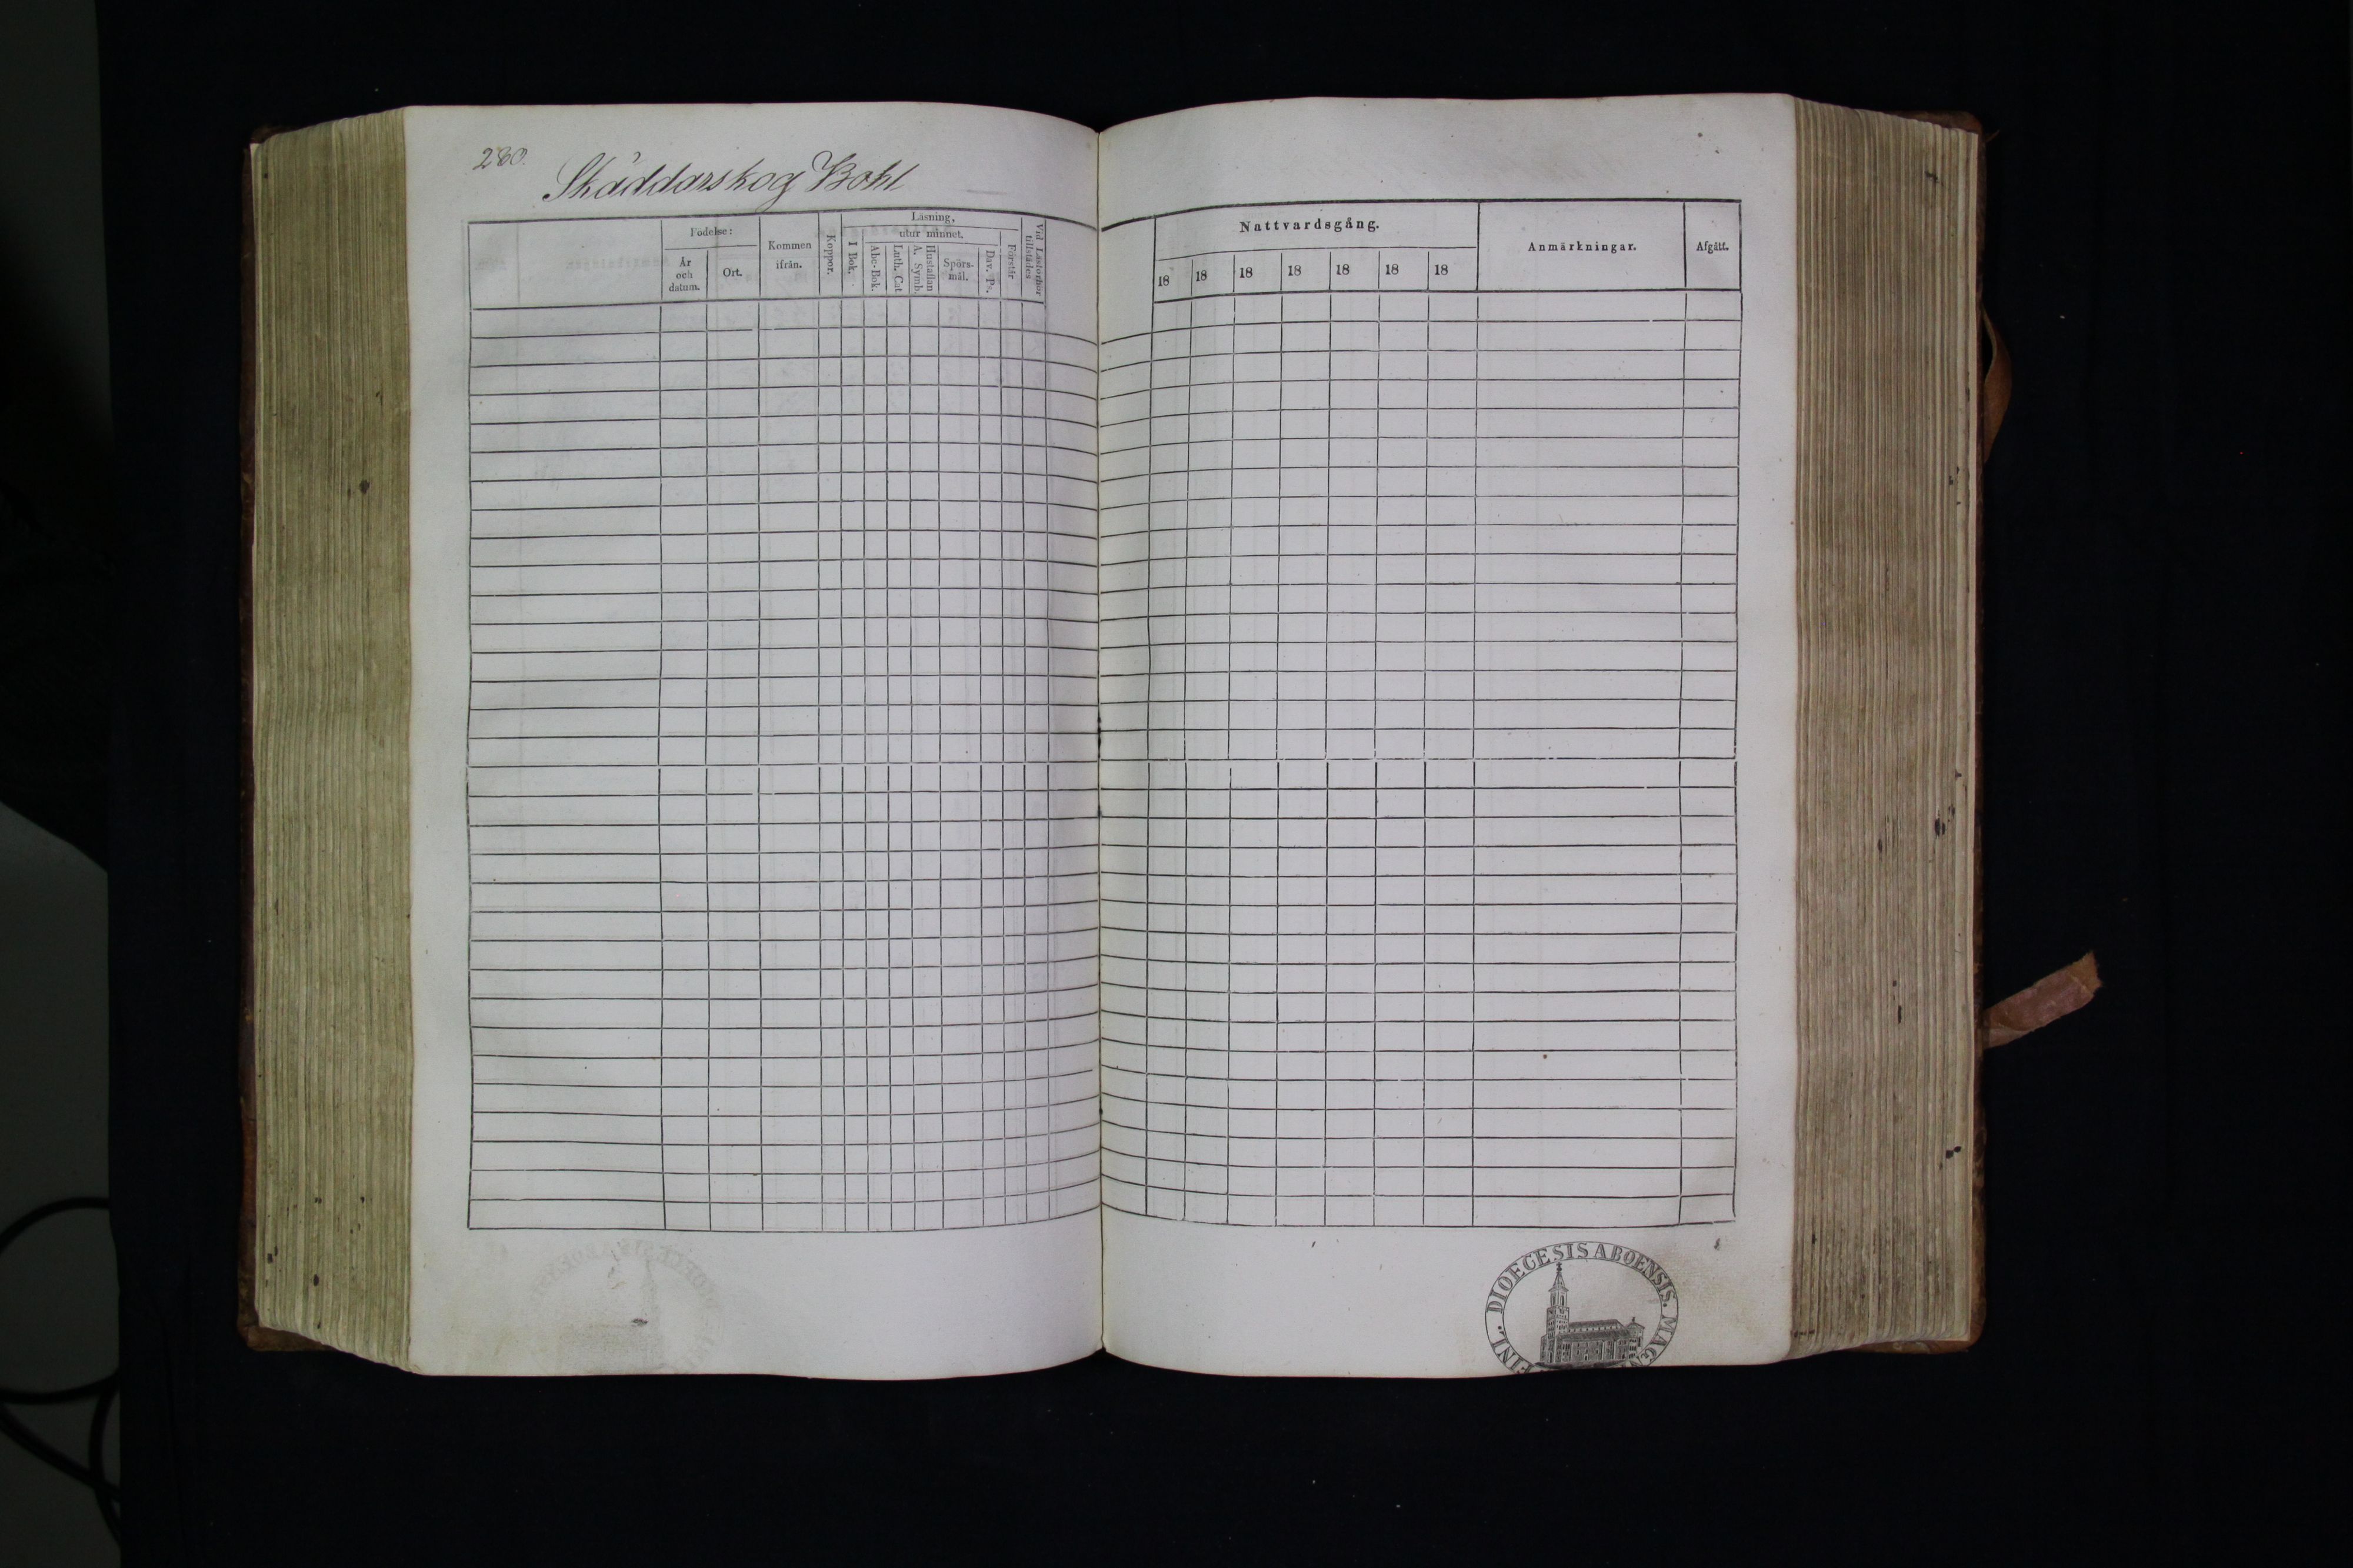 280.
Skäddarskog Bohl
Födelse:
År
och
datum.
Ort.
Kommen
ifrån.
Koppor.
Läsning,
I Bok.
utur minnet.
Abc-Bok.
Luth. Cat
Hustaflan
A. Symb.
Spörs-
mål.
Dav. Ps.
Förstår
Vid Läsförhör
tillstädes
Nattvardsgång.
18 18 18 18 18 18 18
Anmärkningar.
Afgått.
FINL. DIOECESIS ABOENSIS. MAGN